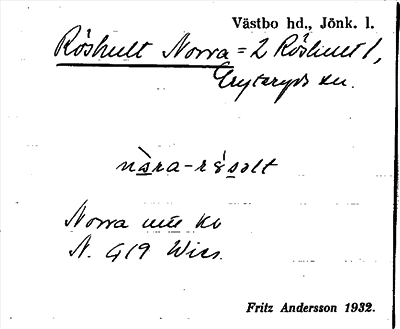 Västbo hd., Jönk. l.
Röshult Norra = 2 Röshult 1,
Gryteryds sn.
nàra-rǿsəlt
Norra
N. G19 Wiss.
Fritz Andersson 1932.